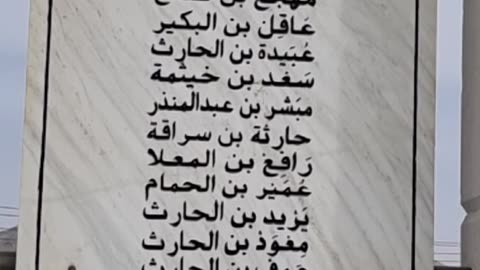 مهجع بن
عَاقِل بن البكير
عُبَيدة بن الحارث
سَعْد بن خَيثمة
مبَشر بن عبدالمنذر
حارثة بن سراقة
رَافِع بن المعلا
عُمَيْر بن الحمام
يَزيد بن الحارث
مِعْوَذ بن الحارث
عوف بن الحارث